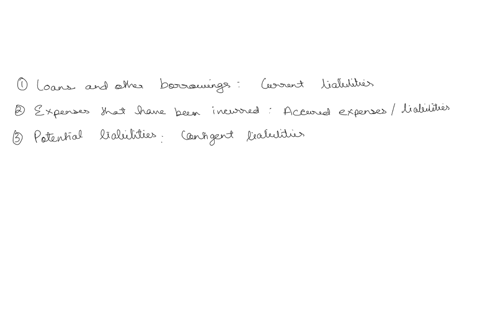 ① Loans and other borrowings: Current liabilities
② Expenses that have been incurred: Accured expenses / liabilities
③ Potential liabilities: Contigent liabilities